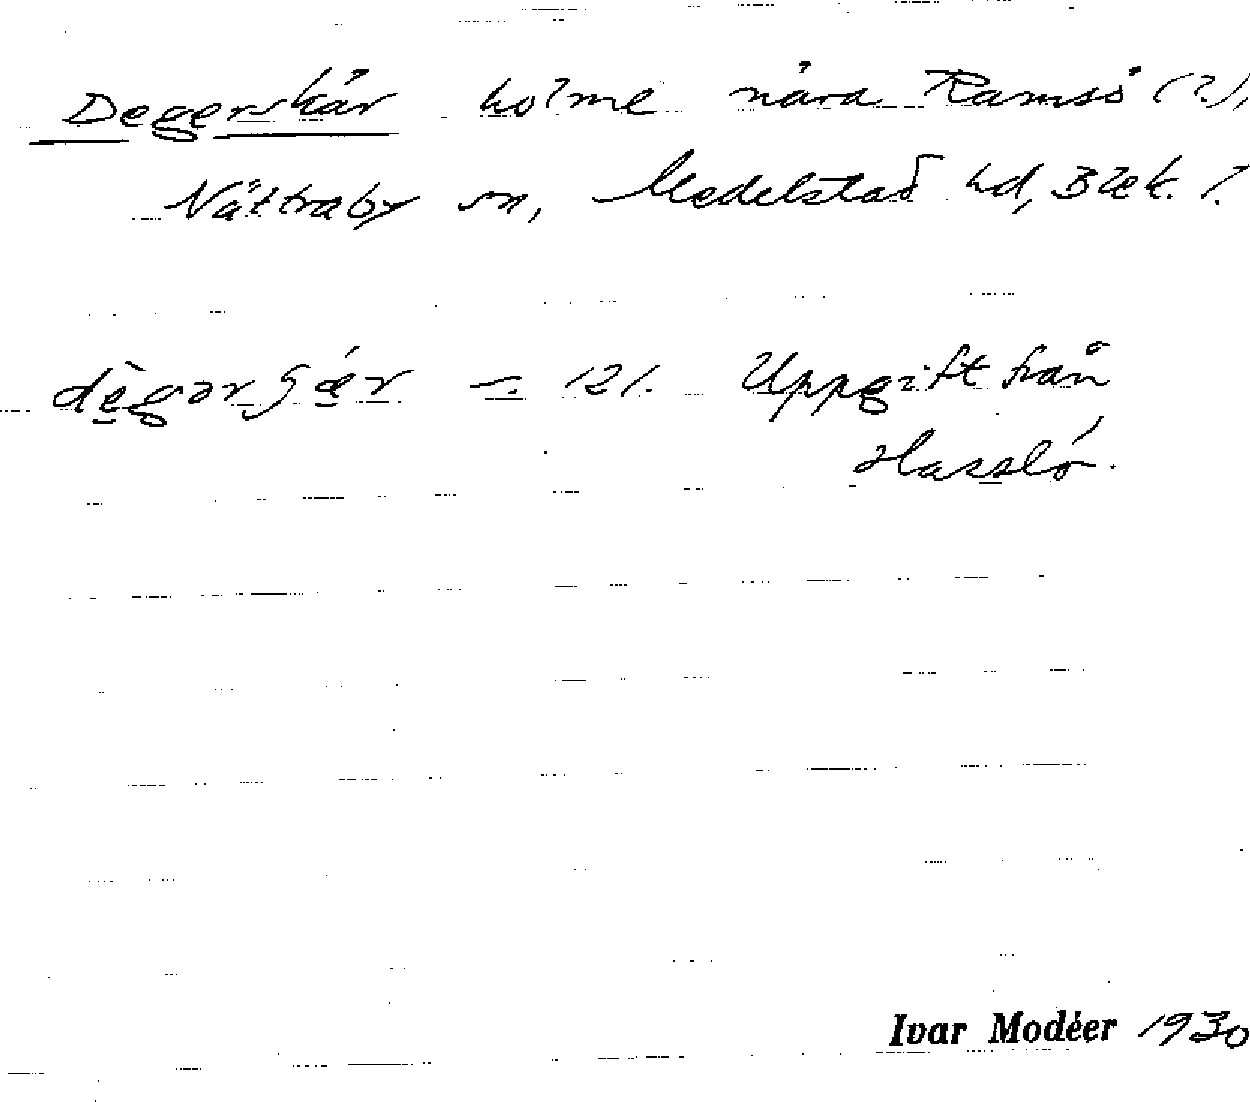 Degerskär holme nära Ramsö (?),
Nättraby sn, Medelstad hd, Blek. l.
Uppgift från
Hasslö.
Ivar Modéer 1930